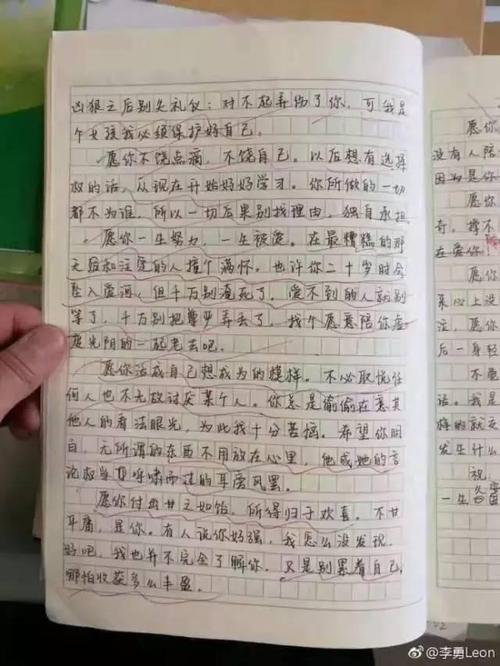 凶狠之后别失礼仪：对不起弄伤了你，可我是
个女孩我必须保护好自己。
愿你不饶点滴，不饶自己。以后想有选择
权的话，从现在开始好好学习。你所做的一切
都不为谁，所以一切后果别找理由，独自承担。
愿你一生努力，一生被爱。在最糟糕的那
天后和注定的人撞个满怀。也许你二十岁时会
坠入爱河，但千万别淹死了，爱不到的人就别
等了，千万别把尊严弄丢了，找个愿意陪你虚
度光阴的一起老去吧。
愿你活成自己想成为的模样。不必取悦任
何人也不无故讨厌某个人。你总是偷偷在意其
他人的看法眼光，为此我十分苦恼。希望你明
白，无所谓的东西不用放在心里，他或她的言
论权当耳呼啸而过的耳旁风罢。
愿你付出甘之如饴，所得归于欢喜。不甘
平庸，是你。有人说你好强，我怎么没发现，
好吧，我也并不完全了解你，只是别累着自己，
哪怕收获多么丰盈。
愿你
没有人陪
因为是你
愿你
奇，撑不
在爱你
愿你
来心上没
注，愿你
后一身轻
不要
话。我是
悔的就
发生什么
一生
@李勇Leon